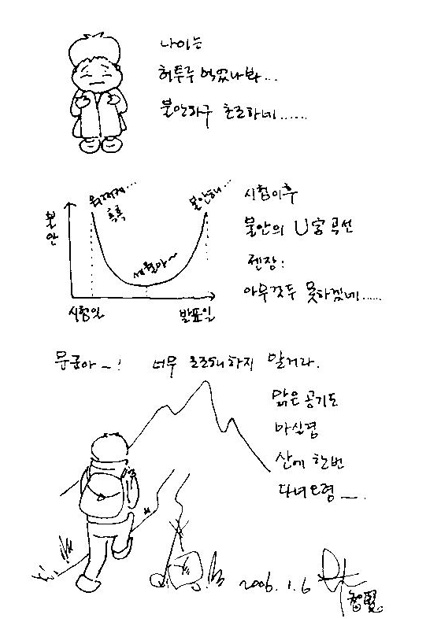 나이는
허투루 먹었나봐...
불안하구 초조하네......
어떡해... 흑흑
세월아~
불안해...
불안
시험일
발표일
시험이후
불안의 U字 곡선
젠장!
아무것두 못하겠네......
문군아~! 너무 초조해하지 말거라.
맑은 공기도
마실겸
산에 한번
다녀오렴~.
2006.1.6
智賢